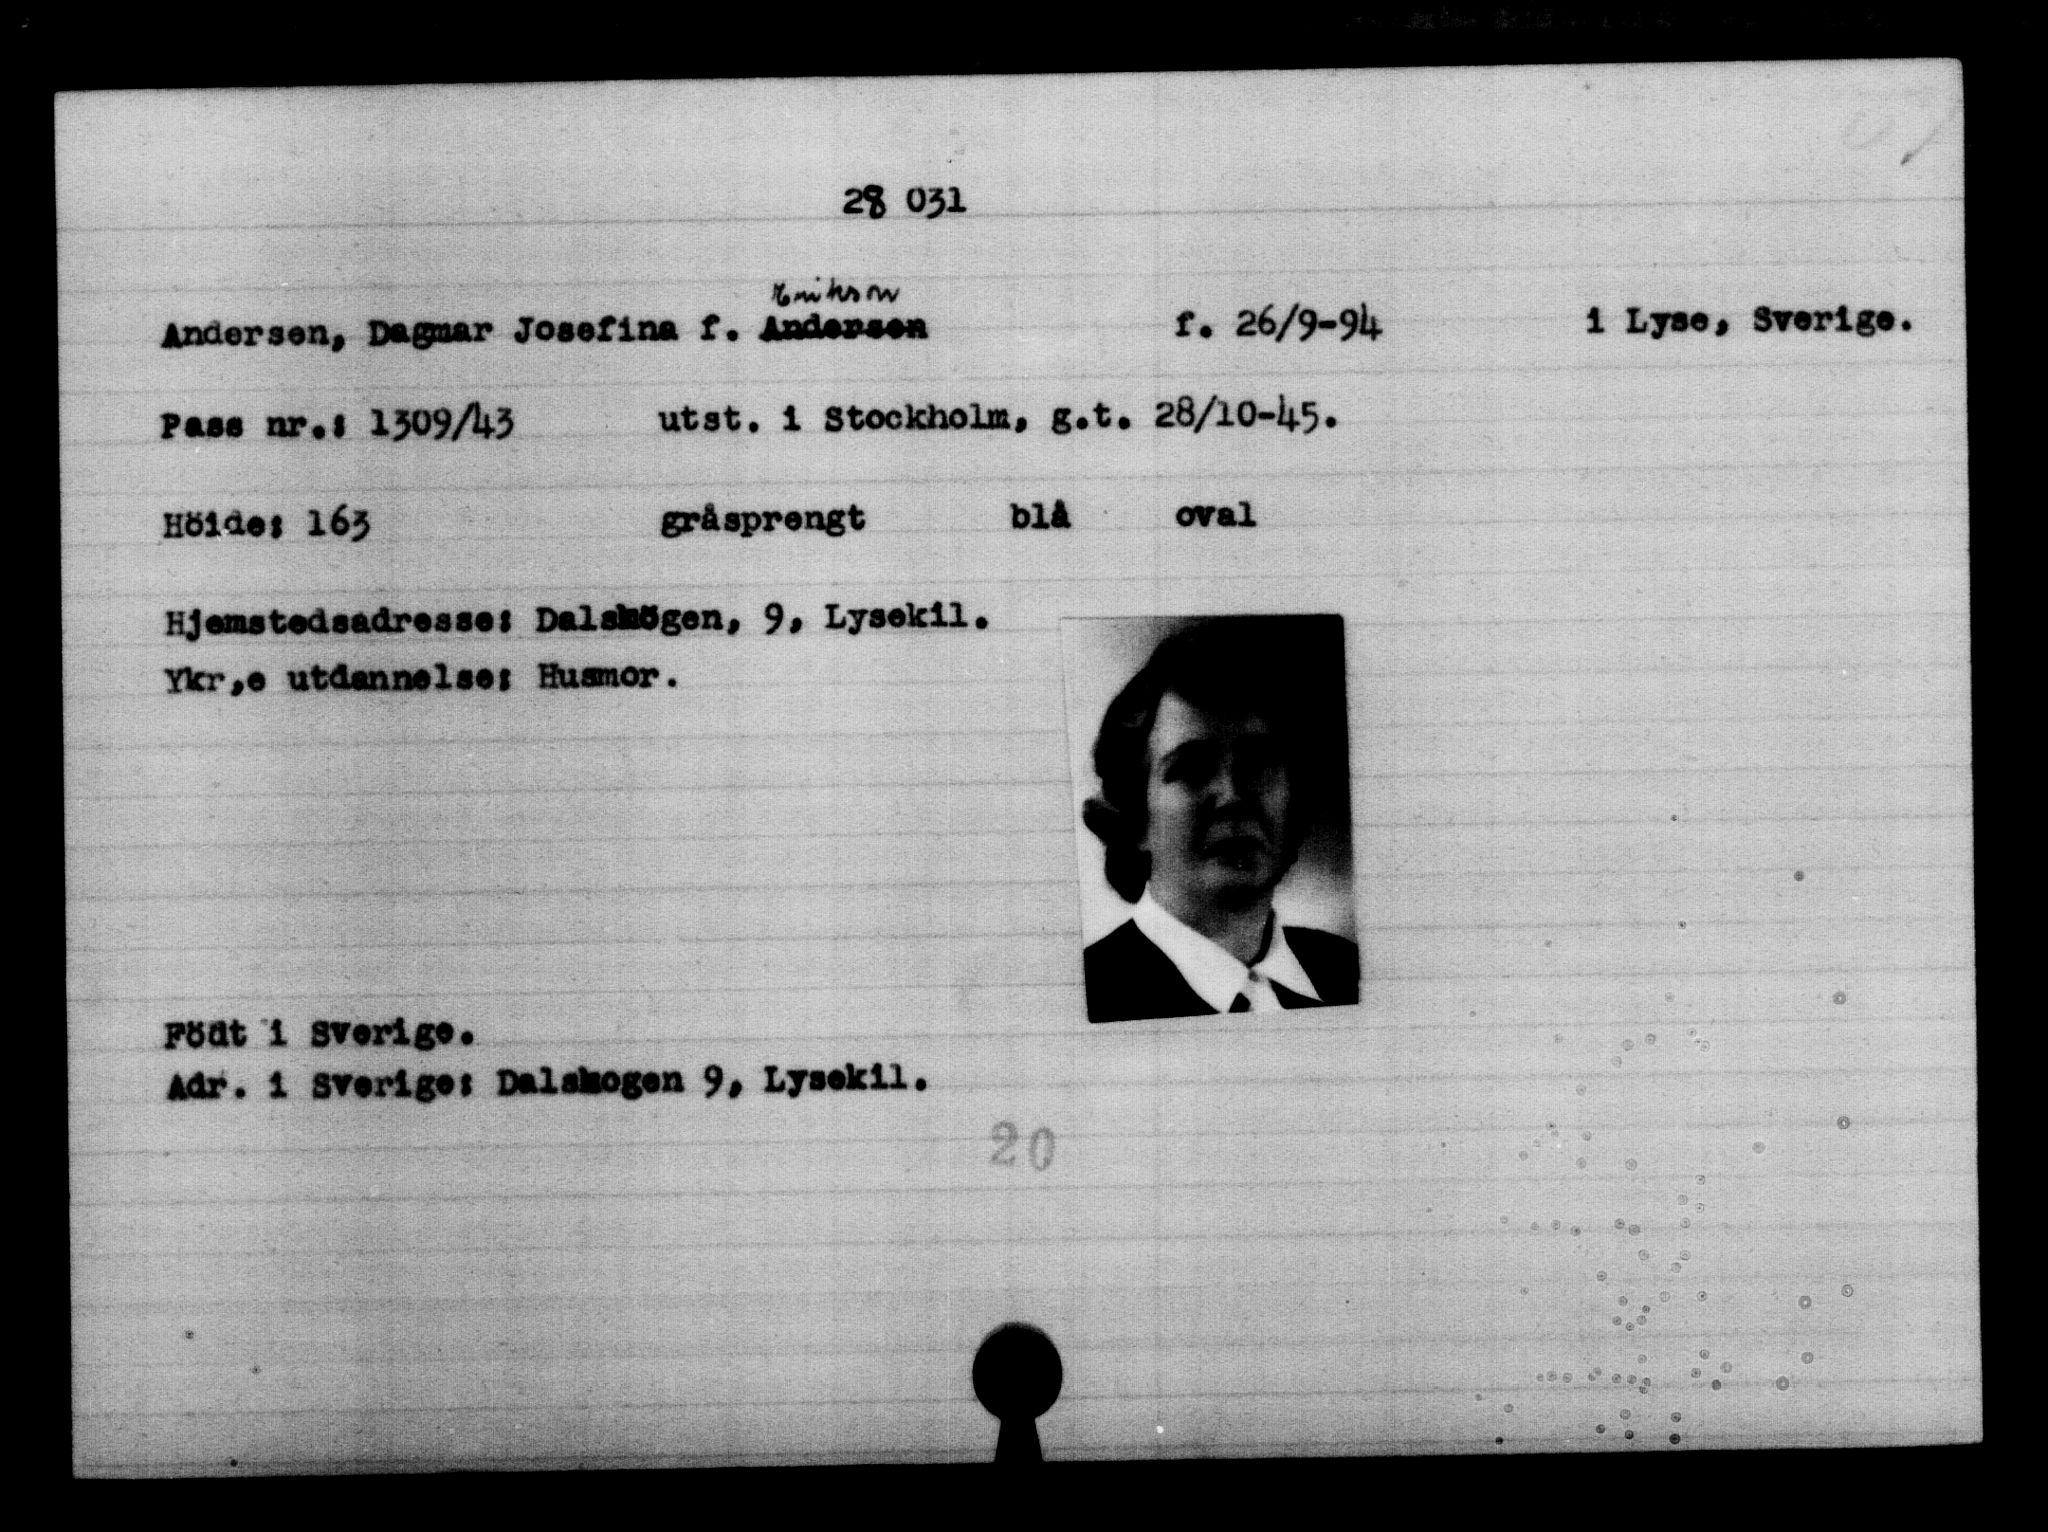 28 031
Erikson
Andersen, Dagmar Josefina f. Andersen f. 26/9-94 i Lyse, Sverige.
Pass nr.: 1309/43 utst. i Stockholm, g.t. 28/10-45.
Höide: 163 gråsprengt blå oval
Hjemstedsadresse: Dalskögen, 9, Lysekil.
Ykr,e utdannelse: Husmor.
Födt i Sverige.
Adr. i Sverige: Dalskogen 9, Lysekil.
20